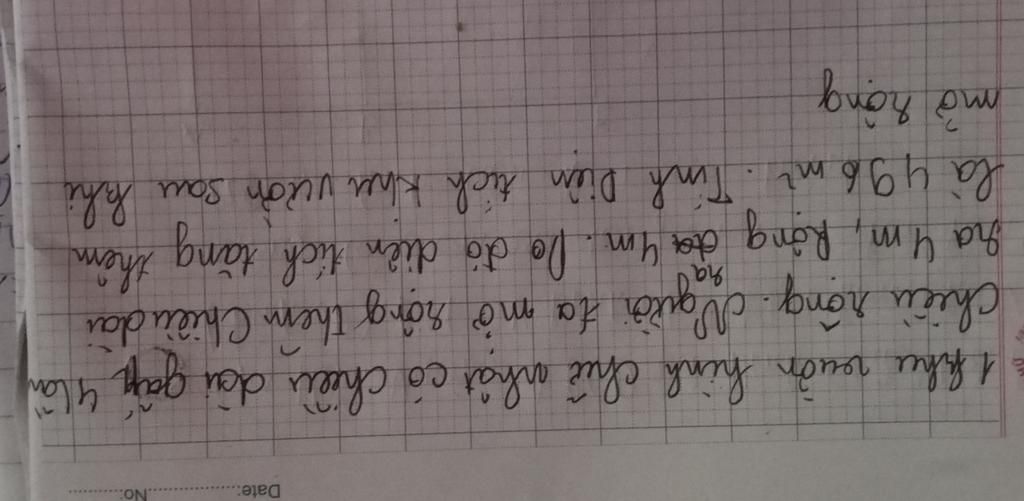 Date:..................No:.............
1 khu vườn hình chữ nhật có chiều dài gấp 4 lần
chiều rộng. Người ta mở rộng thêm Chiều dài
ra 4 m, Rộng ra 4m. Do đó diện tích tăng thêm
là 496 m². Tính Diện tích khu vườn sau khi
mở rộng